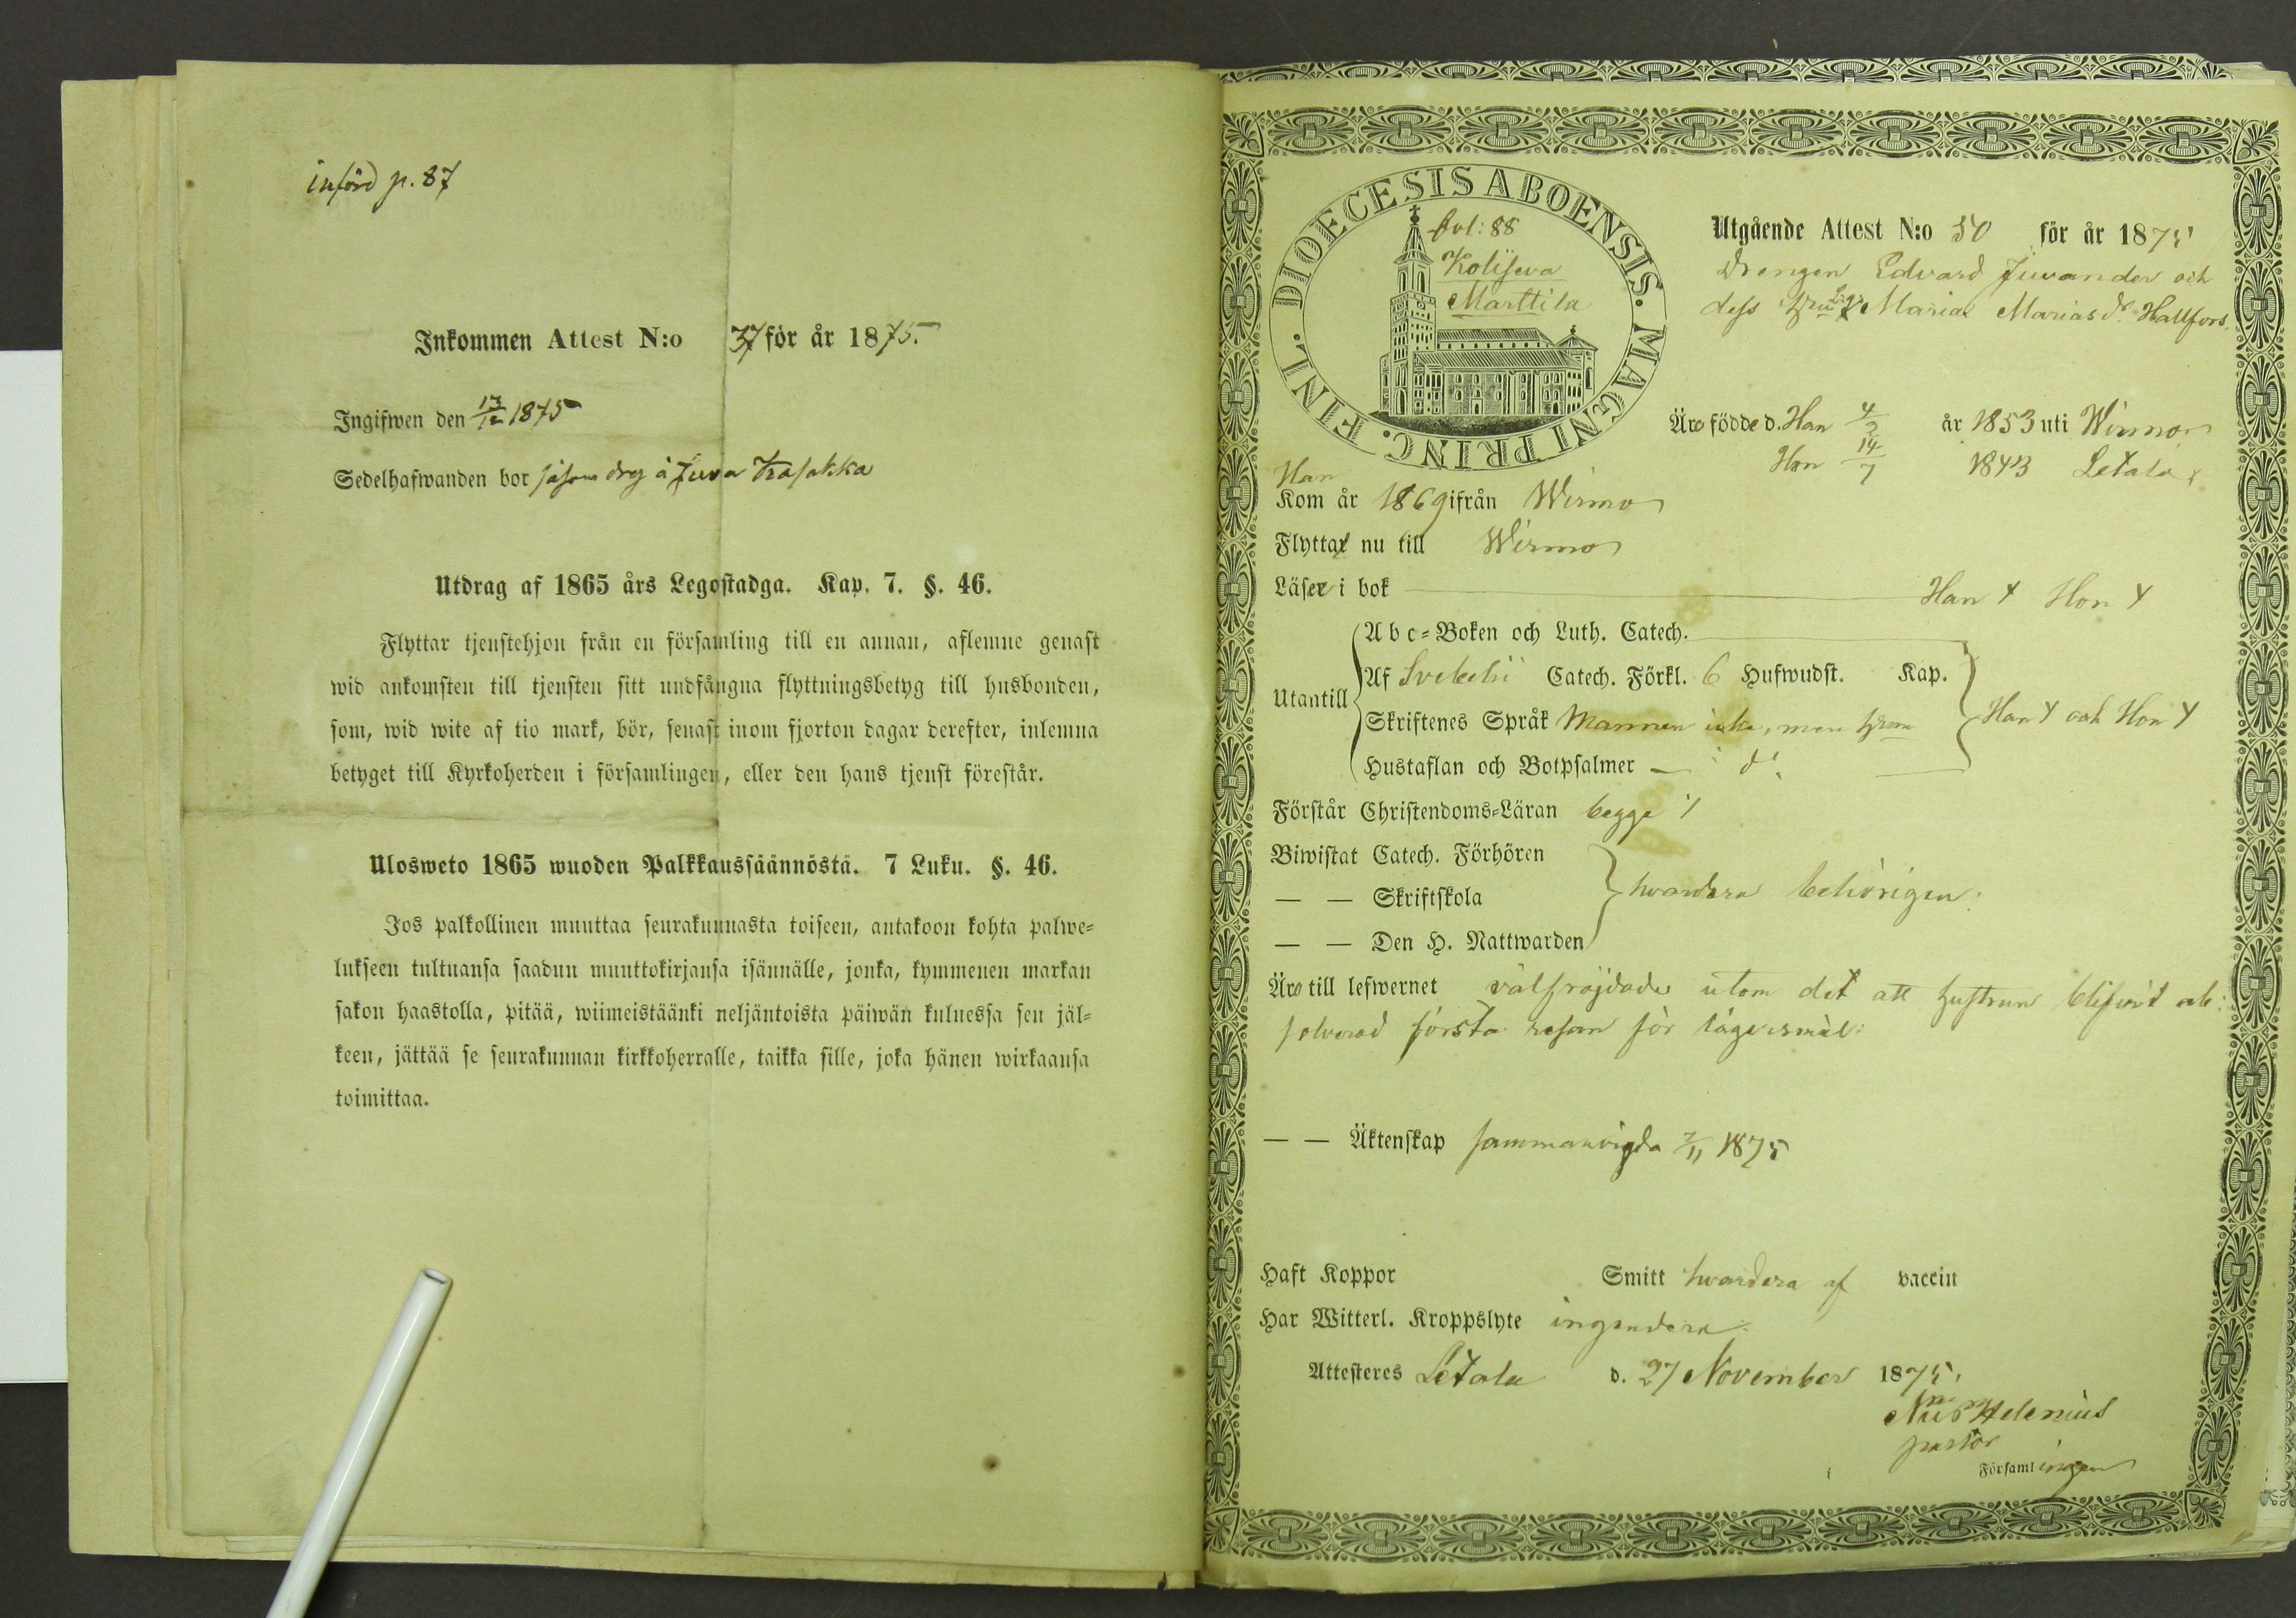 införd p. 87
Inkommen Attest N:o 37 för år 1875.
Ingifwen den 13/12 1875
Sedelhafwanden bor såsom drg å Juva
Utdrag af 1865 års Legostadga. Kap. 7. §. 46.
Flyttar tjenstehjon från en församling till en annan, aflemne genast
wid ankomsten till tjensten sitt undfångna flyttningsbetyg till husbonden,
som, wid wite af tio mark, bör, senast inom fjorton dagar derefter, inlemna
betyget till Kyrkoherden i församlingen, eller den hans tjenst förestår.
Ulosweto 1865 wuoden Palkkaussäännöstä. 7 Luku. §. 46.
Jos palkollinen muuttaa seurakunnasta toiseen, antakoon kohta palwe=
lukseen tultuansa saadun muuttokirjansa isännälle, jonka, kymmenen markan
sakon haastolla, pitää, wiimeistäänki neljäntoista päiwän kuluessa sen jäl=
keen, jättää se seurakunnan kirkkoherralle, taikka sille, joka hänen wirkaansa
toimittaa.
DIOECESIS ABOENSIS. MAGNI PRINC. FINL.
fol: 88
Kolijeva
Marttila
Utgående Attest N:o 50 för år 1875
Drengen Edvard Juvander och
dess Maria Marias dr. Hallfors.
Äro födde d. Han 4/3 år 1853 uti Wirmo
Hon 14/7 1843 Letala
Han
Kom år 1869 ifrån Wirmo
Flytta nu till Wirmo
Läser i bok Han Y Hon Y
Utantill
A b c=Boken och Luth. Catech.
Af Svebelii Catech. Förkl. 6 Hufwudst. Kap.
Skriftenes Språk Mannen icke, men
Hustaflan och Botpsalmer — d:
Han Y och Hon Y
Förstår Christendoms=Läran begge
Biwistat Catech. Förhören
— — Skriftskola
— — Den H. Nattwarden
hvardera behörigen.
Äro till lefwernet välfräjdade utom det att hustrun blifvit ab:
solverad första resan för lägersmål:
— — Äktenskap sammanvigda 7/11 1875
Haft Koppor Smitt hvardera af vaccin
Har Witterl. Kroppslyte ingendera
Attesteres Letala d. 27 November 1875.
Helenius
pastor
i Församlingen